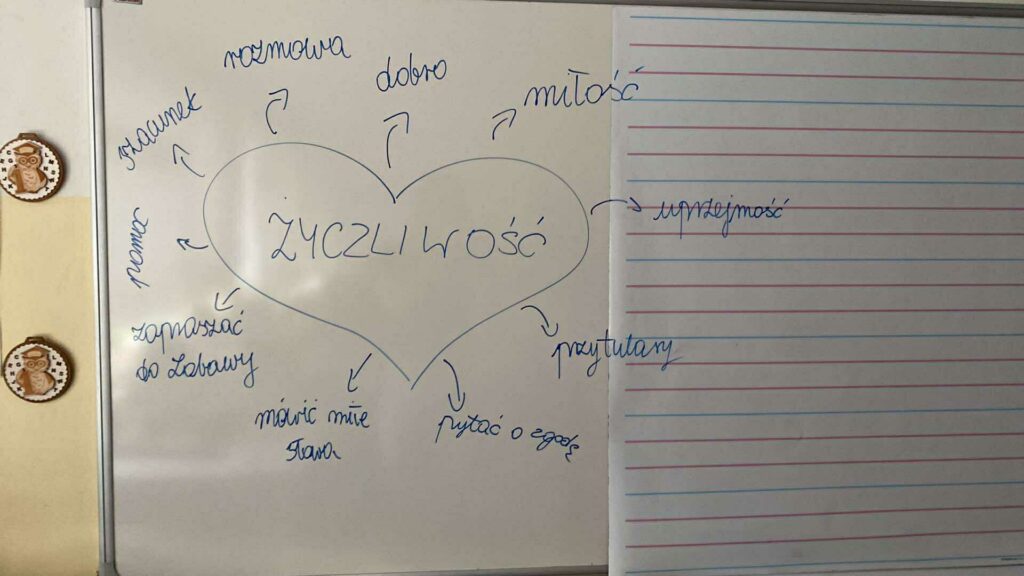 rozmowa
dobro
miłość
szacunek
ŻYCZLIWOŚĆ
uprzejmość
pomoc
zapraszać
do zabawy
przytulasy
mówić miłe
słowa
pytać o zgodę